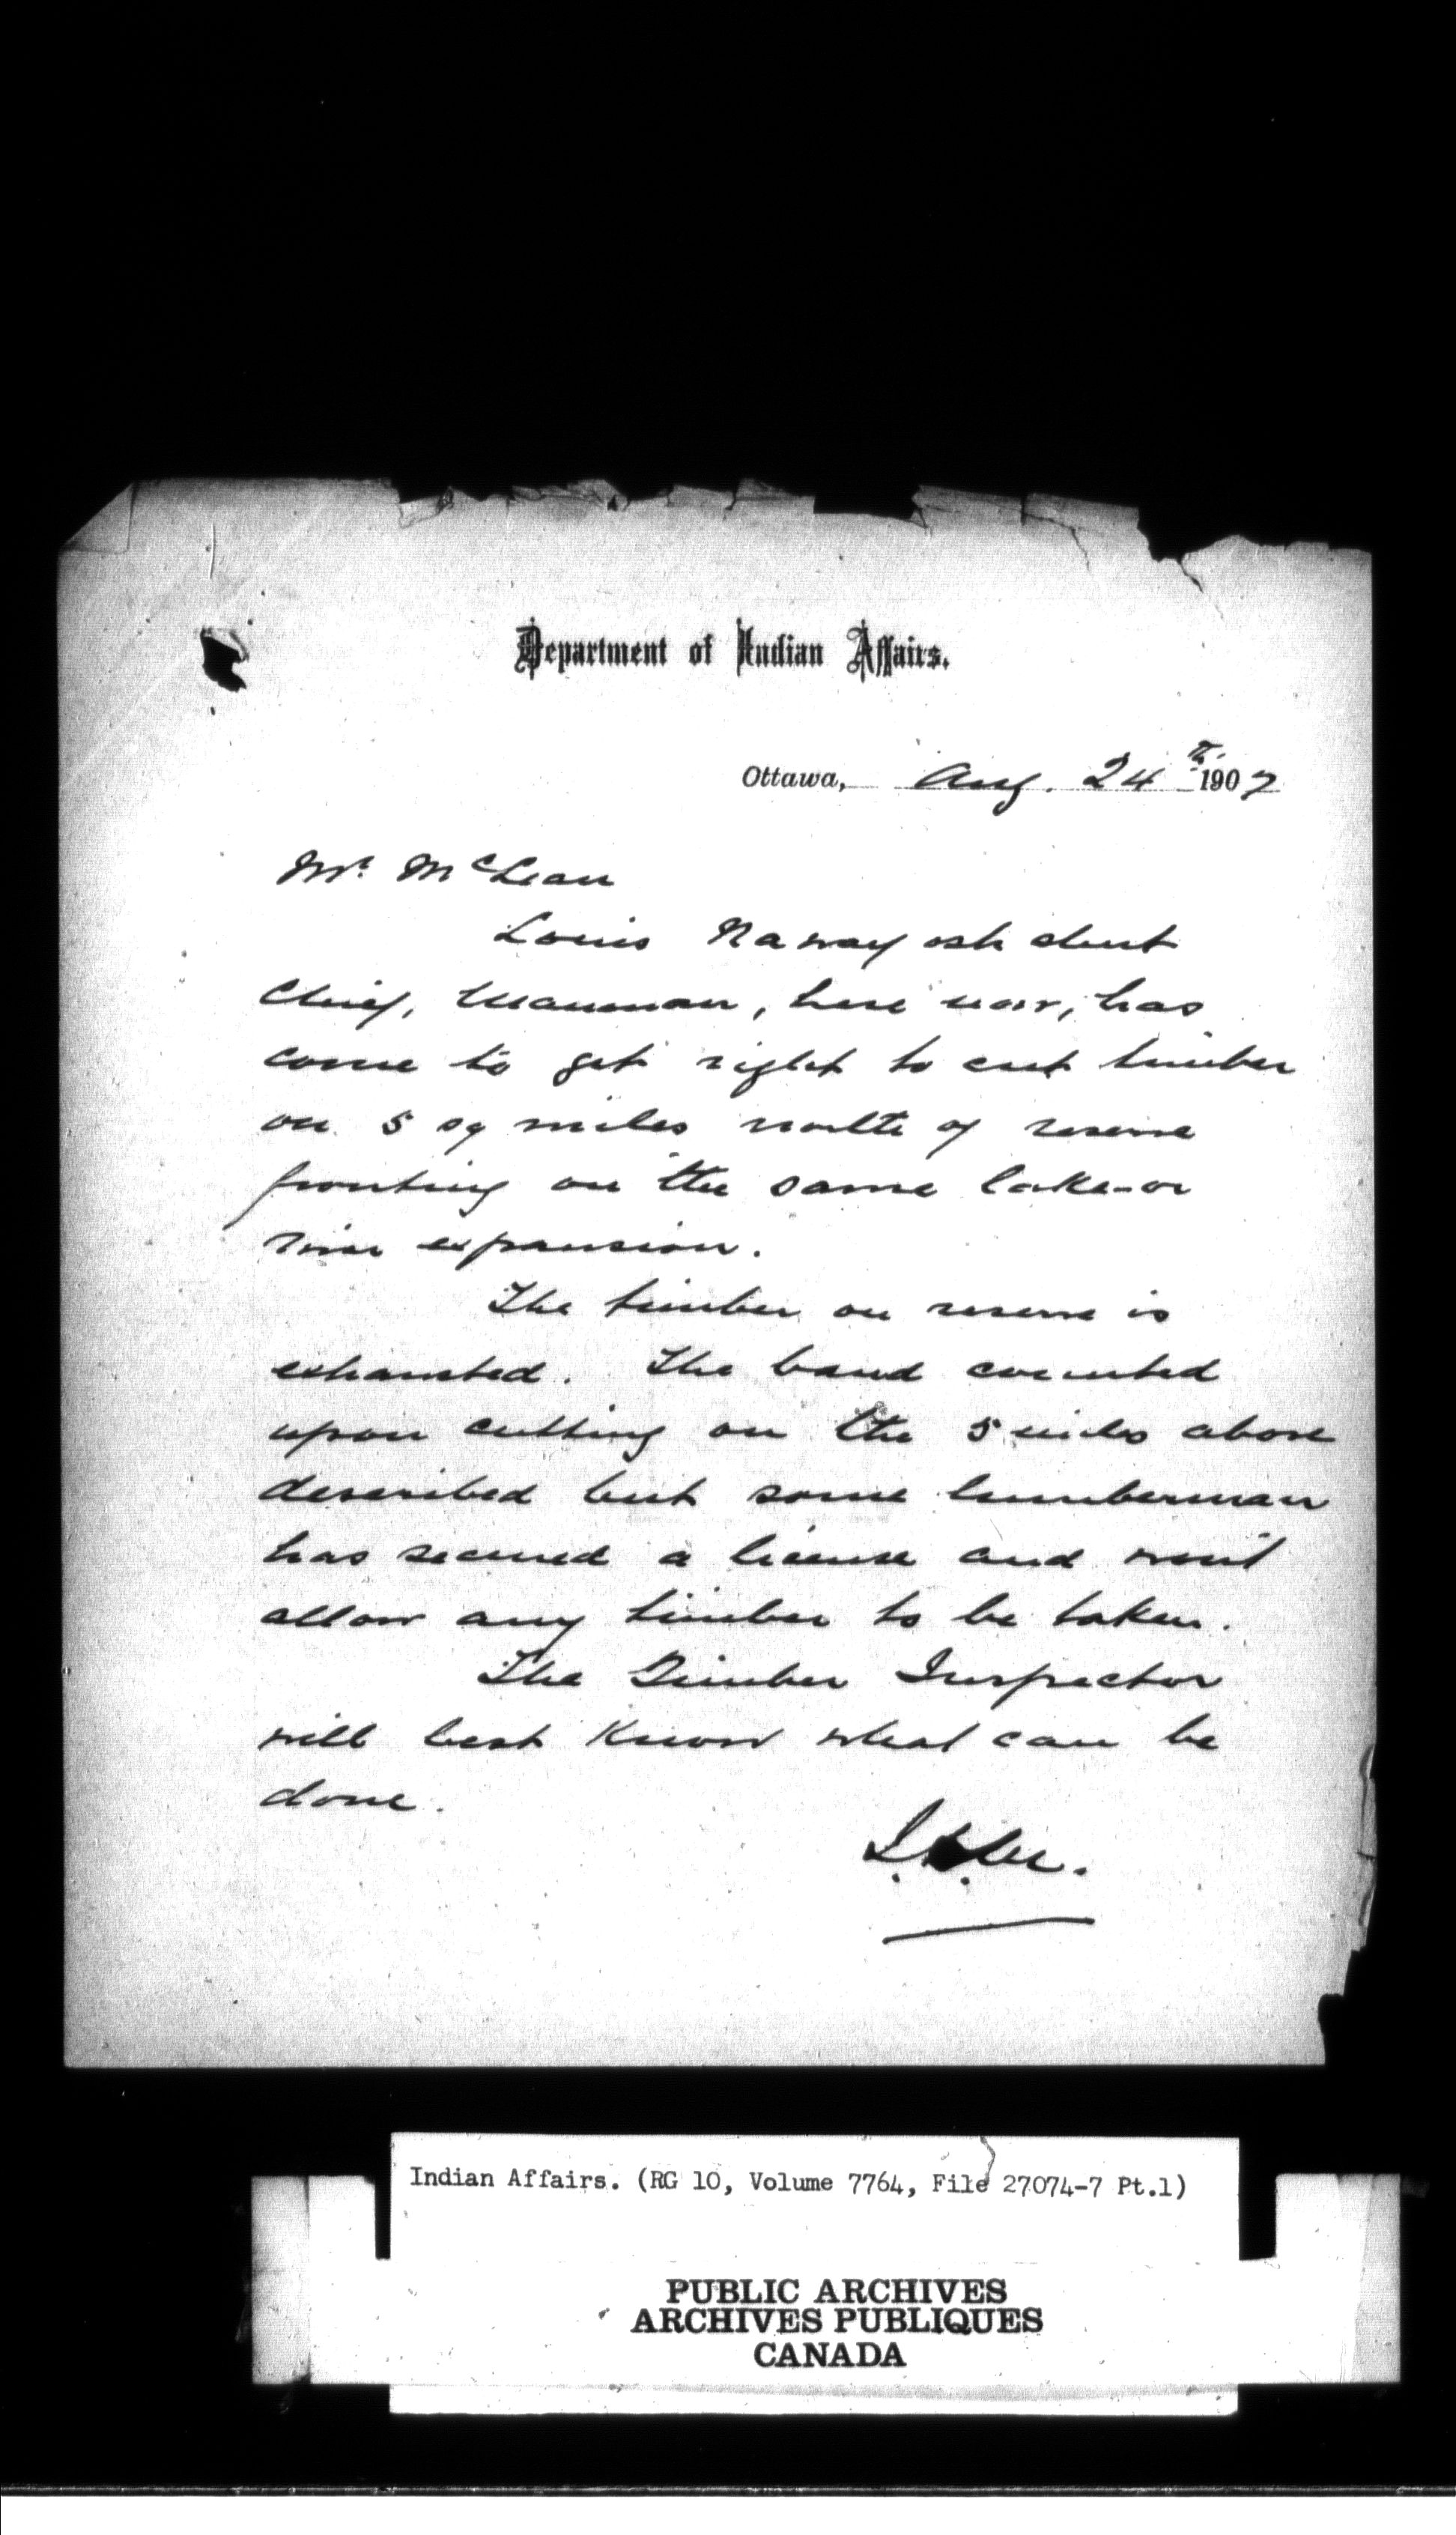 Department of Indian Affairs.
Ottawa, Aug. 24th 1907
Mr. McLean
Louis
Chief, here now, has
come to get right to cut timber
on 5 sq miles north of reserve
fronting on the same lake-or
river expansion.
The timber on reserve is
exhausted. The band counted
upon cutting on the 5 miles above
described but some lumberman
has secured a license and won't
allow any timber to be taken.
The Timber Inspector
will best know what can be
done.
Indian Affairs. (RG 10, Volume 7764, File 27074-7 Pt.1)
PUBLIC ARCHIVES
ARCHIVES PUBLIQUES
CANADA